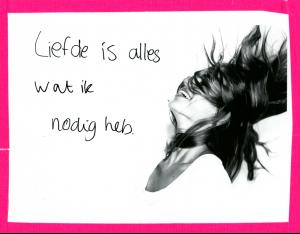 Liefde is alles
wat ik
nodig heb.